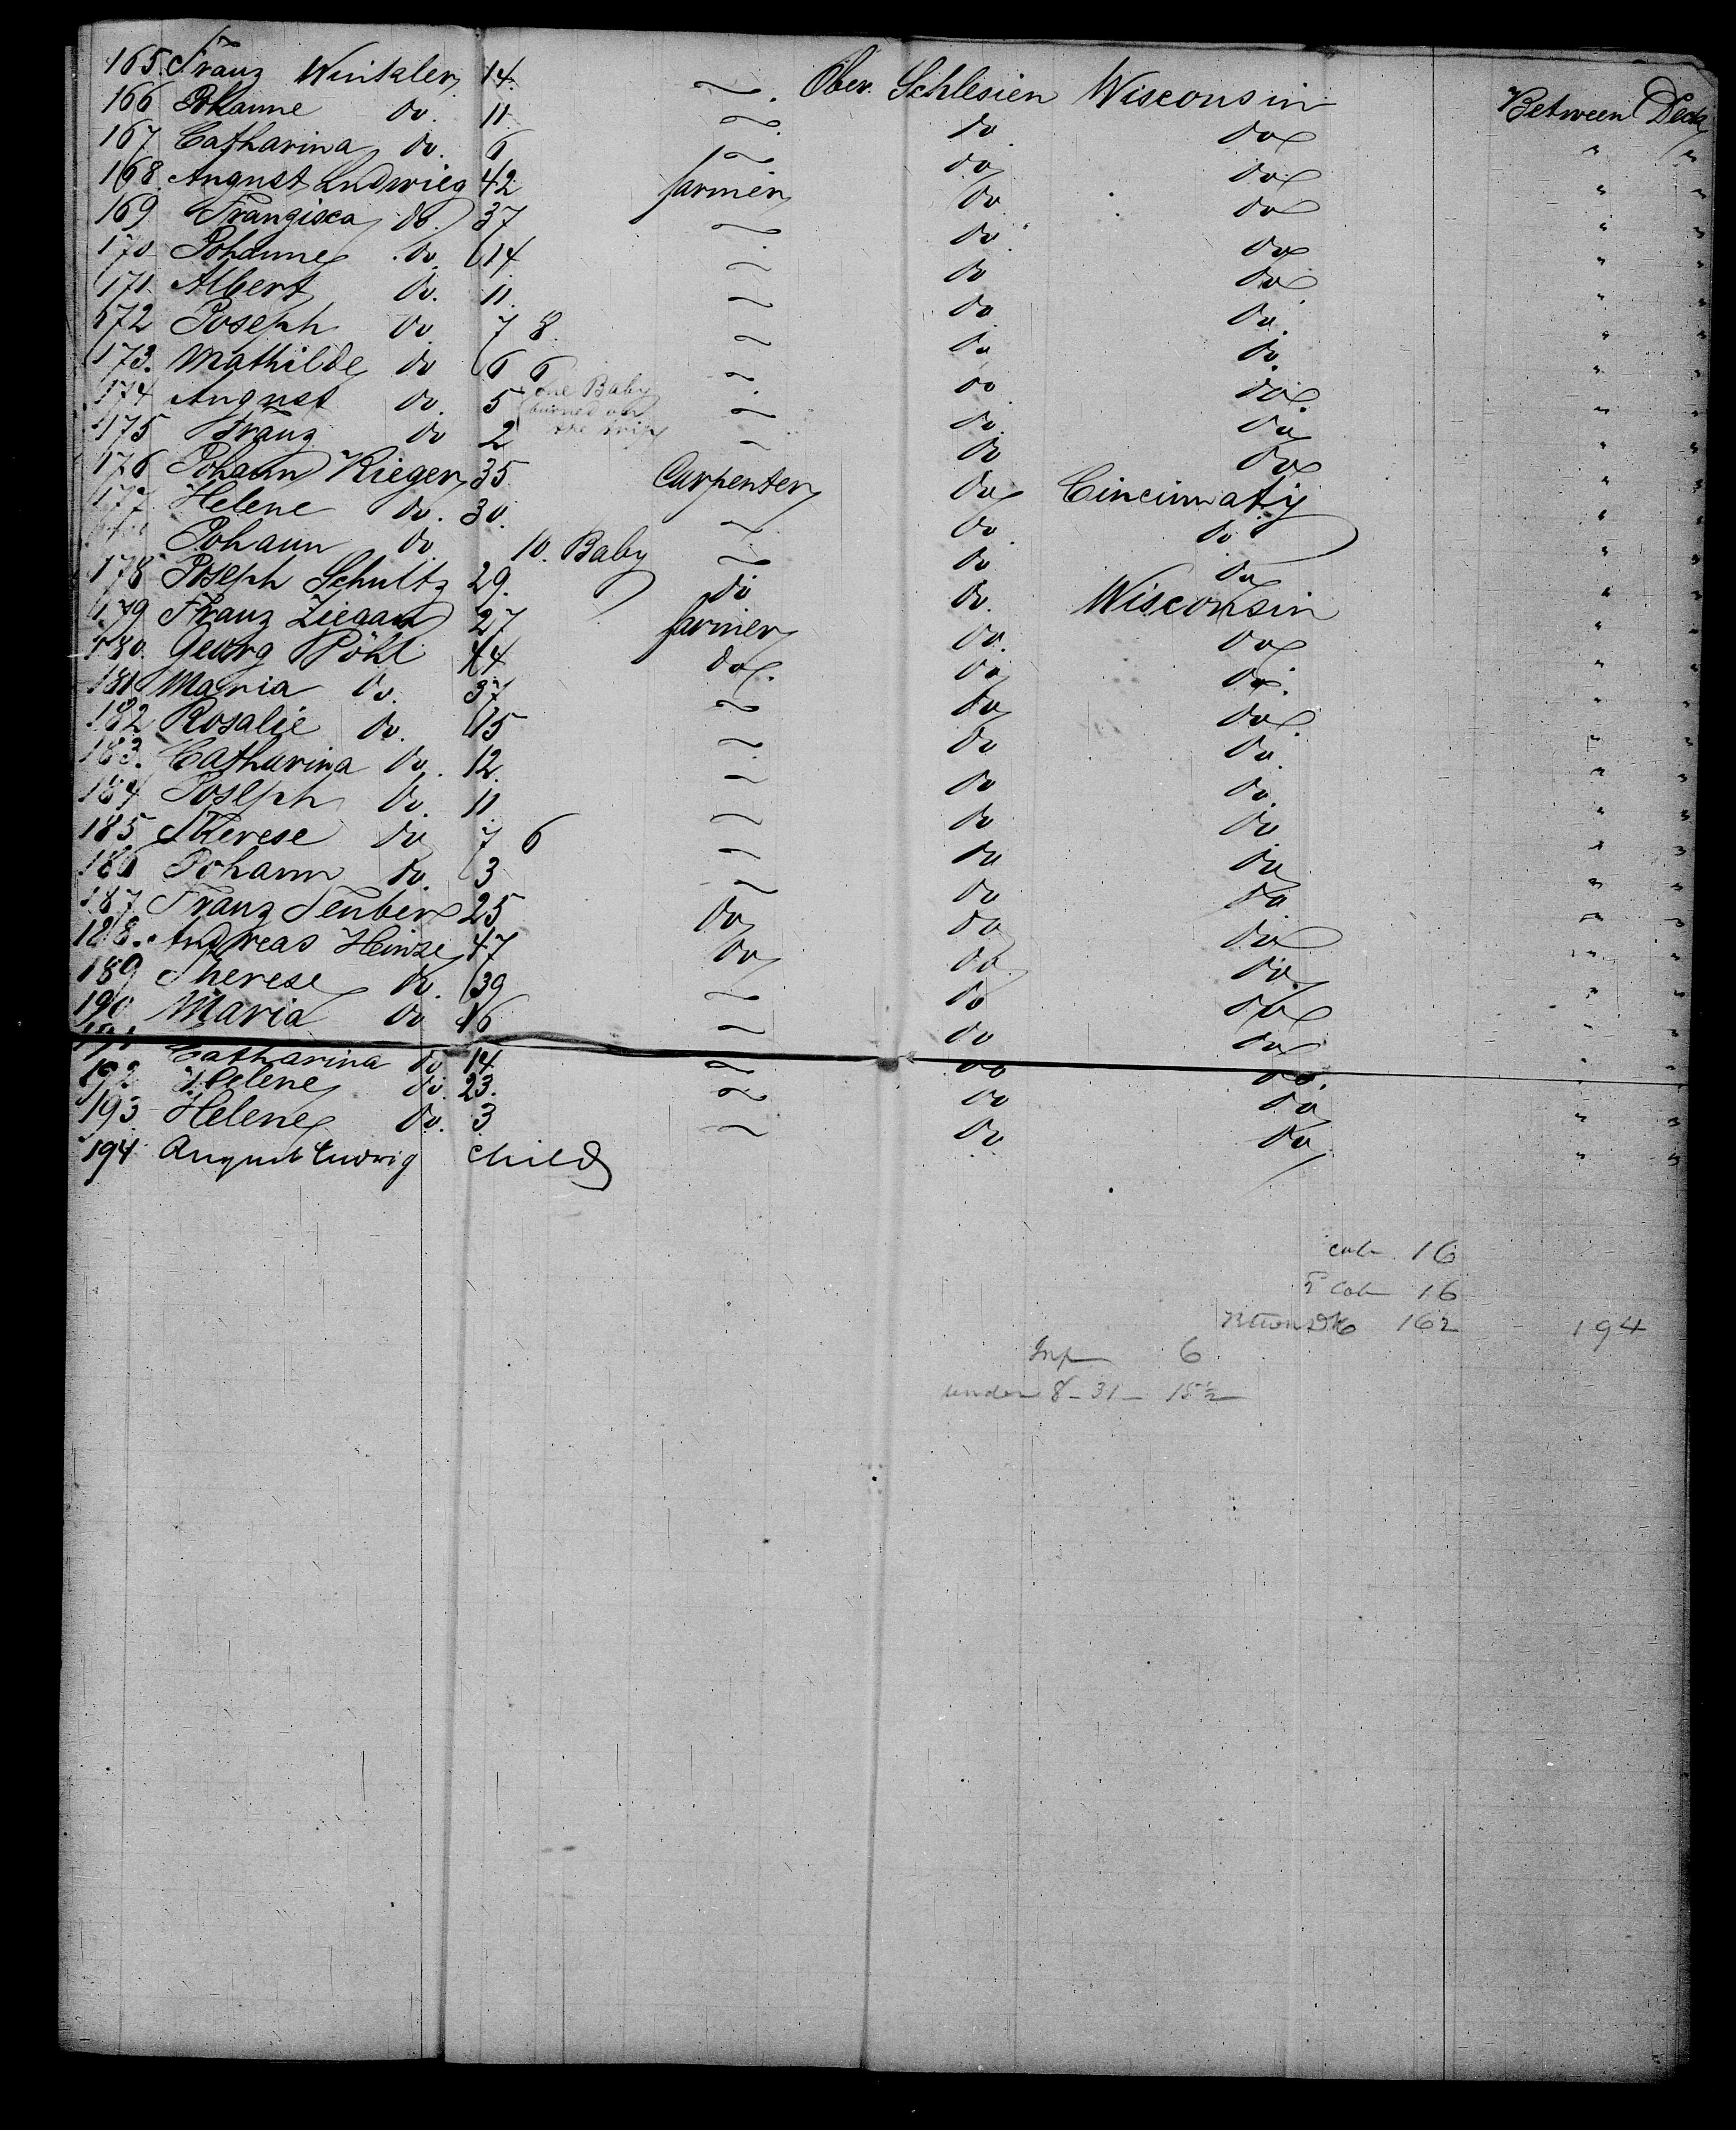 165. Franz Winkler 14. ~. Ober. Schlesien Wisconsin Between Deck
166 Johanne do. 11 ~. do. do " "
167 Catharina do. 6 ~ do do " "
168. August Ludwieg 42 farmer do do " "
169 Franziska do. 37 ~ do. do " "
170 Johanne do. 14 ~ do do " "
171. Albert do. 11. ~ do do. " "
172 Joseph do 7 8. ~ do do. " "
173. Mathilde do 6 6 ~. do do. " "
174 August do. 5 one Baby burned on the trip ~ do. do " "
175 Franz do 2 ~ do do " "
176 Johann Rieger 35 Carpenter do Cincinnaty " "
177 Helene do. 30. ~ do. do " "
Johann do. 10. Baby ~ do do " "
178 Joseph Schultz 29. do do. Wisconsin " "
179 Franz 27 farmer do. do " "
180. Georg Pöhl 44 do. do do. " "
181 Maria do. 37 ~ do do. " "
182 Rosalie do. 15 ~. do do. " "
183. Catharina do. 12. ~ do do. " "
184 Joseph do. 11. ~ do do " "
185 Therese do 7 6 ~ do do " "
186 Johann do. 3 ~ do do " "
187. Franz Teuber 25 do do do " "
188. Andreas Heinze 47 do do. do " "
189 Therese do. 39 ~ do do " "
190 Maria do 16 ~ do do " "
191 Catharina do 14 ~ do do. " "
192 Helene do. 23. ~ do do " "
193. Helene do. 3 ~ do do " "
194 August Ludwig child
cab 16
2d Cab 16
162 194
Inf 6
under 8 - 31 - 15 1/2